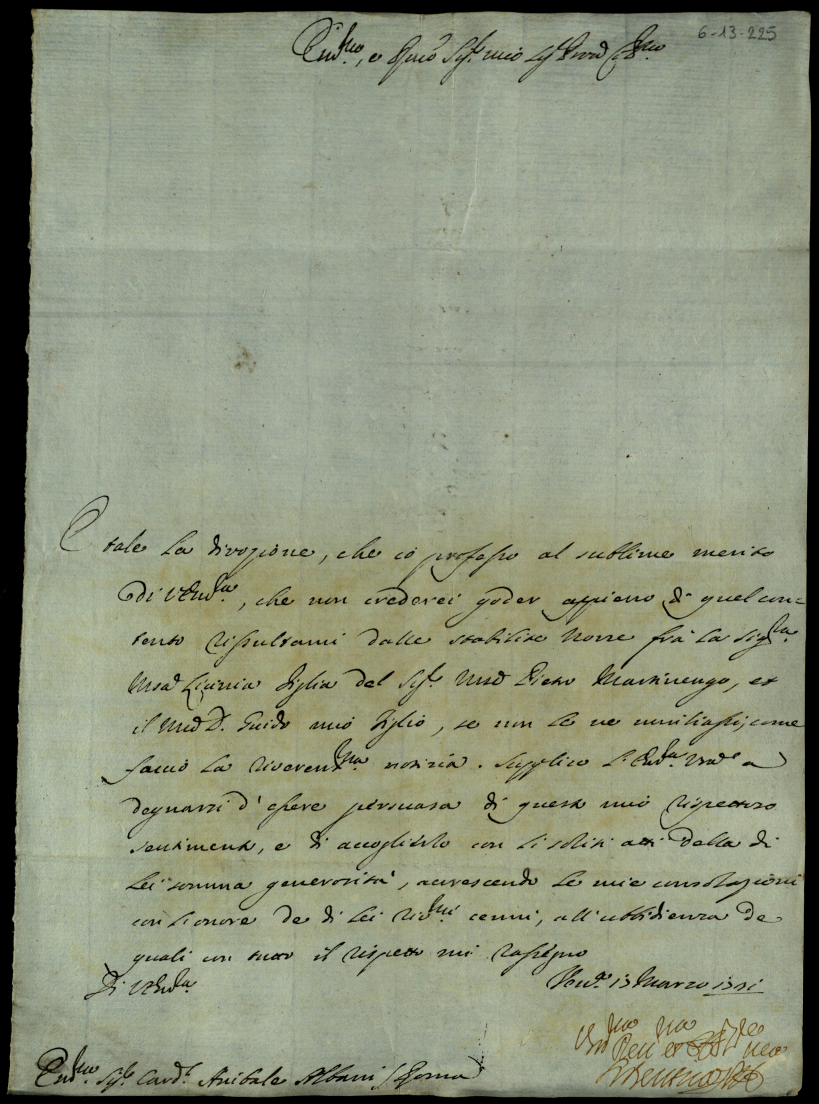 6-13-225
Em.mo, e Rmo Sig.r mio Sig.r Pron Col.mo
E tale la divozione, che io professo al sublime merito
di V Em.za, che non crederei goder appieno di quel con=
tento risultami dalle stabilite Nozze frà la Sig.ra
Licinia figlia del Sig.r Pietro Martinengo, et
il D. Guido mio figlio, se non le ne umiliassi, come
faccio la riverent.ma notizia. Supplico l'Em.za Vra a
degnarsi d'essere persuasa di questo mio rispettoso
sentimento, e di accoglierlo con li soliti atti della di
Lei somma generosità, accrescendo le mie consolazioni
con l'onore de di Lei riv.mi cenni, all'ubbidienza de
quali con tutto il rispetto mi rassegno
Di V Em.za
13 Marzo
Em.mo Sig.r Card.l Anibale Albani / Roma